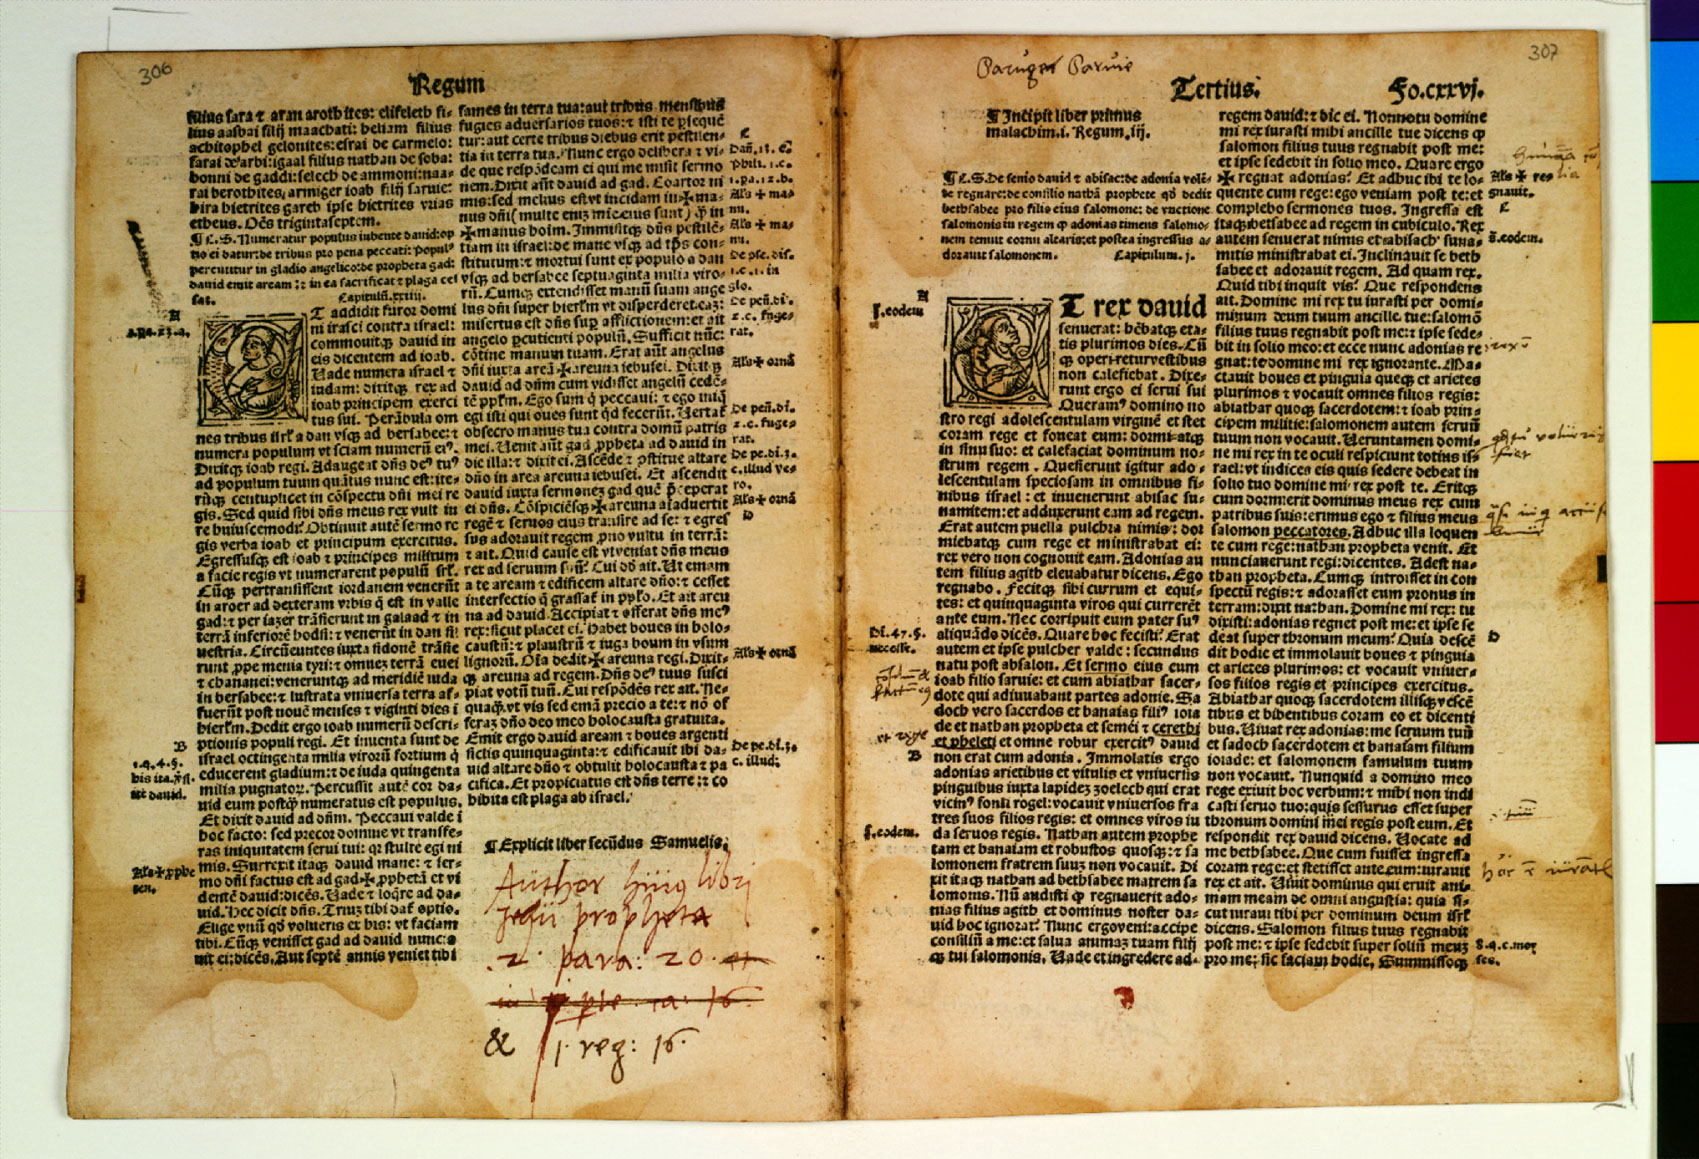 306
Regum
filius sara ⁊ aran arothites: elifeleth fi-
lius aasbai filij maachati: heliam filius
achitophel gelonites: esrai de carmelo:
farai de arbi: igaal filius nathan de soba:
bonni de gaddi: selech de ammoni: naa-
rai berothites, armiger ioab filij saruie:
hira hietrites gareb ipse hietrites vrias
etheus. Oēs trigintaseptem.
¶ C.S. Numeratur populus iubente dauid: op
tio ei datur: de tribus pro pena peccati: Popul⁹
percutitur in gladio angelico: de propheta gad:
dauid emit aream: ⁊ in ea sacrificat ⁊ plaga ces
sat.
Capitulū. xxiiij.
A
T addidit furor domi
ni irasci contra israel:
commouitqꝫ dauid in
eis dicentem ad ioab.
Uade numera israel ⁊
iudam: dixitqꝫ rex ad
ioab principem exerci
tus sui. Perābula om
nes tribus isrl' a dan vsqꝫ ad bersabee: ⁊
numera populum vt sciam numerū ei⁹.
Dixitqꝫ ioab regi. Adaugeat dn̄s de⁹ tu⁹
ad populum tuum quātus nunc est: ite-
rūqꝫ centuplicet in cōspectu dn̄i mei re
gis. Sed quid sibi dn̄s meus rex vult in
re huiuscemodi: Obtinuit autē sermo re
gis verba ioab et principum exercitus.
Egressusqꝫ est ioab ⁊ principes militum
a facie regis vt numerarent populū isrl'.
Cūqꝫ pertransissent iordanem venerūt
in aroer ad dexteram vrbis q̄ est in valle
gad: ⁊ per iazer trāsierunt in galaad ⁊ in
terrā inferiorē hodsi: ⁊ venerūt in dan sil
uestria. Circūeuntes iuxta sidonē trāsie
runt ꝓpe menia tyri: ⁊ omneꝫ terrā euei
⁊ chananei: veneruntqꝫ ad meridiē iuda
in bersabee: ⁊ lustrata vniuersa terra af-
fuerūt post nouē menses ⁊ viginti dies ī
hierl'm. Dedit ergo ioab numerū descri-
ptionis populi regi. Et inuenta sunt de
B
israel octingenta milia virorū fortium q̄
educerent gladium: ⁊ de iuda quingenta
milia pugnatoꝝ. Percussit autē cor da-
uid eum postqꝫ numeratus est populus.
Et dixit dauid ad dn̄m. Peccaui valde ī
hoc facto: sed precor domine vt transfe-
ras iniquitatem serui tui: qꝛ stulte egi ni
mis. Surrexit itaqꝫ dauid mane: ⁊ ser-
mo dn̄i factus est ad gad ✠ ꝓphetā et vi
dentē dauid: dicēs. Uade ⁊ loq̄re ad da-
uid. Hec dicit dn̄s. Triuꝫ tibi daf optio.
Elige vnū qđ volueris ex his: vt faciam
tibi. Cūqꝫ venisset gad ad dauid nunciā
uit ei: dicēs. Aut septē annis veniet tibi
fames in terra tua: aut tribus mensibus
fugies aduersarios tuos: ⁊ isti te ꝑsequē
tur: aut certe tribus diebus erit pestilen-
tia in terra tua. Nunc ergo delibera ⁊ vi-
de que respōdeam ei qui me misit sermo
nem. Dixit aūt dauid ad gad. Coartor ni
mis: sed melius est vt incidam in ✠ ma-
nus dn̄i (multe enim mīe eius sunt) q̄ in
✠ manus hoīm. Immisitqꝫ dn̄s pestilē-
tiam in israel: de mane vsqꝫ ad tp̄s con-
stitutum: ⁊ mortui sunt ex populo a dan
vsqꝫ ad bersabee septuaginta milia viro-
rū. Cumqꝫ extendisset manū suam ange
lus dn̄i super hierl'm vt disperderet eaꝫ:
misertus est dn̄s suꝑ afflictionem: et ait
angelo ꝑcutienti populū. Sufficit nūc:
cōtine manum tuam. Erat aūt angelus
dn̄i iuxta areā ✠ areuna iebusei. Dixitqꝫ
dauid ad dn̄m cum vidisset angelū cedē-
tē pplm. Ego sum q̄ peccaui: ⁊ ego iniq̄
egi isti qui oues sunt qđ fecerūt. Uertat
obsecro manus tua contra domū patris
mei. Uenit aūt gad ꝓpheta ad dauid in
die illa: ⁊ dixit ei. Ascēde ⁊ ꝯstitue altare
dn̄o in area areuna iebusei. Et ascendit
dauid iuxta sermoneꝫ gad quē p̄ceperat
ei dn̄s. Cōspiciēsqꝫ ✠ areuna aīaduertit
regē ⁊ seruos eius transire ad se: ⁊ egres
sus adorauit regem ꝓno vultu in terrā:
⁊ ait. Quid cause est vt veniat dn̄s meus
rex ad seruum suū? Cui dd ait. Ut emam
a te aream ⁊ edificem altare dn̄o: ⁊ cesset
interfectio q̄ grassat in pplo. Et ait areu
na ad dauid. Accipiat ⁊ offerat dn̄s me⁹
rex: sicut placet ei. Habet boues in holo-
caustū: ⁊ plaustrū ⁊ iuga boum in vsum
lignorū. Oīa dedit ✠ areuna regi. Dixit-
qꝫ areuna ad regem. Dn̄s de⁹ tuus susci
piat votū tuū. Cui respōdēs rex ait. Ne-
quaqꝫ vt vis sed emā precio a te: ⁊ nō of
feraꝫ dn̄o deo meo holocausta gratuita.
Emit ergo dauid aream ⁊ boues argenti
siclis quinquaginta: ⁊ edificauit ibi da-
uid altare dn̄o ⁊ obtulit holocausta ⁊ pa
cifica. Et propiciatus est dn̄s terre: ⁊ co
hibita est plaga ab israel.
¶ Explicit liber secūdus Samuelis.
Author huiq libri
Jesu propheta
2 para: 20
& 1. reg: 16.
2.pa.23.a.
1.q.4.§.
his ita. ꝟsi.
nec dauid.
Als ✠ ꝓphe
ten.
C
Dan̄.13.c.
Phili.1.c.
1.pa.12.b.
Als ✠ ma-
nu.
Als ✠ ma-
nu.
De pe. dis.
1.c.1. in
glo.
De pen̄.di.
2.c. fuge-
rat.
Als ✠ ornā
De pen̄.di.
2.c. fuge-
rat.
De pe.di.3.
c. illud ve-
ro.
Als ✠ ornā
D
Als ✠ ornā
De pe.di.3.
c. illud:
307
Tertius.
Fo.cxxvj.
¶ Incipit liber primus
malachim. i. Regum. iij.
¶ C.S. De senio dauid ⁊ abisac: de adonia volē-
te regnare: de consilio nathā prophete qđ dedit
bethsabee pro filio eius salomone: de vnctione
salomonis in regem q̄ adonias timens salomo-
nem tenuit cornu altaris: et postea ingressus a-
dorauit salomonem.
Capitulum. j.
A
ſ.eodem
T rex dauid
senuerat: hēbatqꝫ eta-
tis plurimos dies. Cū
qꝫ operiretur vestibus
non calefiebat. Dixe-
runt ergo ei serui sui
Queram⁹ domino no
stro regi adolescentulam virginē et stet
coram rege et foueat eum: dormiatqꝫ
in sinu suo: et calefaciat dominum no-
strum regem. Quesierunt igitur ado-
lescentulam speciosam in omnibus fi-
nibus israel: et inuenerunt abisac su-
namitem: et adduxerunt eam ad regem.
Erat autem puella pulchra nimis: dor
miebatqꝫ cum rege et ministrabat ei:
rex vero non cognouit eam. Adonias au
tem filius agith eleuabatur dicens. Ego
regnabo. Fecitqꝫ sibi currum et equi-
tes: et quinquaginta viros qui currerēt
ante eum. Nec corripuit eum pater su⁹
aliquādo dicēs. Quare hoc fecisti? Erat
autem et ipse pulcher valde: secundus
natu post absalon. Et sermo eius cum
ioab filio saruie: et cum abiathar sacer-
dote qui adiuuabant partes adonie. Sa
doch vero sacerdos et banaias fili⁹ ioia
de et nathan propheta et semei ⁊ cerethi
et pheleti et omne robur exercit⁹ dauid
non erat cum adonia. Immolatis ergo
adonias arietibus et vitulis et vniuersis
pinguibus iuxta lapideꝫ zoelech qui erat
vicin⁹ fonti rogel: vocauit vniuersos fra
tres suos filios regis: et omnes viros iu
da seruos regis. Nathan autem prophe
tam et banaiam et robustos quosqꝫ: ⁊ sa
lomonem fratrem suuꝫ non vocauit. Di
xit itaqꝫ nathan ad bethsabee matrem sa
lomonis. Nū audisti q̄ regnauerit ado-
nias filius agith et dominus noster da-
uid hoc ignorat? Nunc ergo veni: accipe
consiliū a me: et salua animaꝫ tuam filij
qꝫ tui salomonis. Uade et ingredere ad-
regem dauid: ⁊ dic ei. Nonne tu domine
mi rex iurasti mihi ancille tue dicens q̄
salomon filius tuus regnabit post me:
et ipse sedebit in solio meo. Quare ergo
✠ regnat adonias? Et adhuc ibi te lo-
quente cum rege: ego veniam post te: et
complebo sermones tuos. Ingressa est
itaqꝫ bethsabee ad regem in cubiculo. Rex
autem senuerat nimis et abisach suna-
mitis ministrabat ei. Inclinauit se beth
sabee et adorauit regem. Ad quam rex.
Quid tibi inquit vis? Que respondens
ait. Domine mi rex tu iurasti per domi-
minum deum tuum ancille tue: salomō
filius tuus regnabit post me: ⁊ ipse sede-
bit in solio meo: et ecce nunc adonias re
gnat: te domine mi rex ignorante. Ma-
ctauit boues et pinguia queqꝫ et arietes
plurimos ⁊ vocauit omnes filios regis:
abiathar quoqꝫ sacerdotem: ⁊ ioab prin-
cipem militie: salomonem autem seruū
tuum non vocauit. Ueruntamen domi-
ne mi rex in te oculi respiciunt totius is-
rael: vt indices eis quis sedere debeat in
solio tuo domine mi rex post te. Eritqꝫ
cum dormierit dominus meus rex cum
patribus suis: erimus ego ⁊ filius meus
salomon peccatores. Adhuc illa loquen
te cum rege: nathan propheta venit. Et
nunciauerunt regi: dicentes. Adest na-
than propheta. Cumqꝫ introisset in con
spectū regis: ⁊ adorasset eum pronus in
terram: dixit nathan. Domine mi rex: tu
dixisti: adonias regnet post me: et ipse se
deat super thronum meum? Quia descē
dit hodie et immolauit boues ⁊ pinguia
et arietes plurimos: et vocauit vniuer-
sos filios regis et principes exercitus.
Abiathar quoqꝫ sacerdotem illisqꝫ vescē
tibus et bibentibus coram eo et dicenti
bus. Uiuat rex adonias: me seruum tuū
et sadoch sacerdotem et banaiam filium
ioiade: et salomonem famulum tuum
non vocauit. Nunquid a domino meo
rege exiuit hoc verbum: ⁊ mihi non indi
casti seruo tuo: quis sessurus esset super
thronum domini mei regis post eum. Et
respondit rex dauid dicens. Uocate ad
me bethsabee. Que cum fuisset ingressa
coram rege: et stetisset ante eum: iurauit
rex et ait. Uiuit dominus qui eruit ani-
mam meam de omni angustia: quia si-
cut iuraui tibi per dominum deum isrl'
dicens. Salomon filius tuus regnabit
post me: ⁊ ipse sedebit super soliū meuꝫ
pro me: sic faciam hodie. Summissoqꝫ
Di.47.§.
necesse.
B
ſ.eodem.
Als ✠ re
gnauit.
C
ſ.eodem.
D